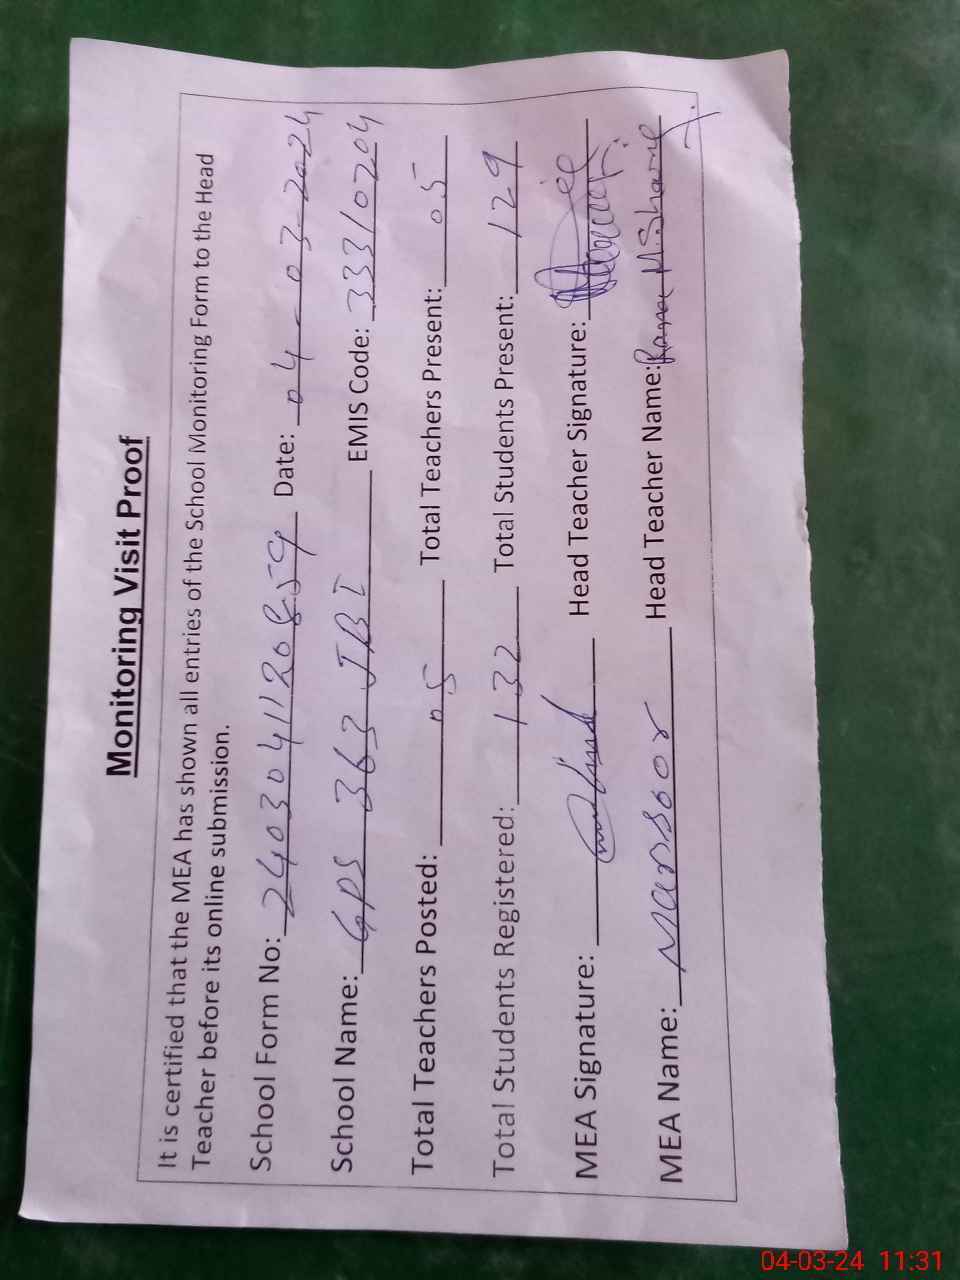 Monitoring Visit Proof
It is certified that the MEA has shown all entries of the School Monitoring Form to the Head
Teacher before its online submission.
School Form No: 2403041120859 Date: 04-03-2024
School Name: GPS 363 JBI EMIS Code: 33310204
Total Teachers Posted: 05 Total Teachers Present: 05
Total Students Registered: 132 Total Students Present: 129
MEA Signature: Head Teacher Signature:
MEA Name: Mansoor Head Teacher Name: Rana M.
04-03-24 11:31